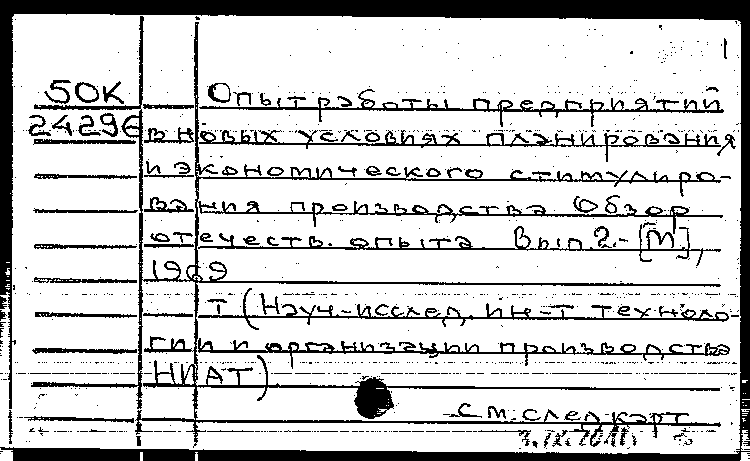 1
50К Опыт работы предприятий
24296 в новых условиях планирования
и экономического стимулиро-
вания производства Обзор
отечеств. опыта. Вып.2.- [М.],
1969
т (Науч.-исслед. ин-т техноло-
гии и организации производства
НИАТ)
см. след карт